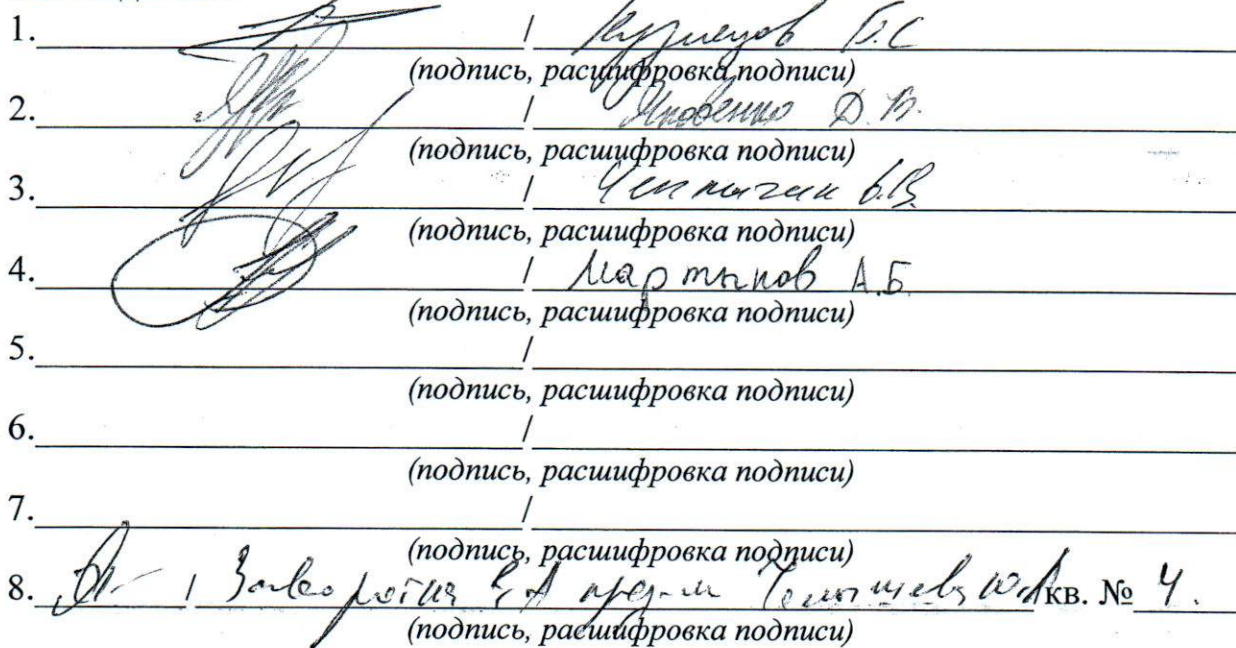 1. / Кузнецов Б.С
(подпись, расшифровка подписи)
2. / Яковенко Д.В.
(подпись, расшифровка подписи)
3. / Б.В.
(подпись, расшифровка подписи)
4. / Мартынов А.Б.
(подпись, расшифровка подписи)
5. /
(подпись, расшифровка подписи)
6. /
(подпись, расшифровка подписи)
7. /
(подпись, расшифровка подписи)
8. / кв. № 4.
(подпись, расшифровка подписи)